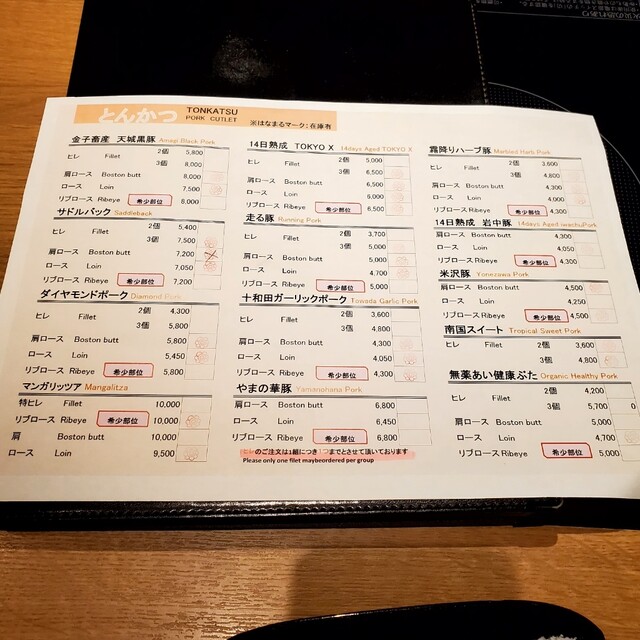 とんかつ TONKATSU
PORK CUTLET ※はなまるマーク:在庫有
金子畜産 天城黒豚 Amagi Black Pork
ヒレ Fillet 2個 5,800
3個 8,000
肩ロース Boston butt 8,000
ロース Loin 7,500
リブロース Ribeye 希少部位 8,000
サドルバック Saddleback
ヒレ Fillet 2個 5,400
3個 7,500
肩ロース Boston butt 7,200
ロース Loin 7,050
リブロース Ribeye 希少部位 7,200
ダイヤモンドポーク Diamond Pork
ヒレ Fillet 2個 4,300
3個 5,800
肩ロース Boston butt 5,800
ロース Loin 5,450
リブロース Ribeye 希少部位 5,800
マンガリッツア Mangalitza
特ヒレ Fillet 10,000
リブロース Ribeye 希少部位 10,000
肩 Boston butt 10,000
ロース Loin 9,500
14日熟成 TOKYO X 14days Aged TOKYO X
ヒレ Fillet 2個 5,000
3個 6,500
肩ロース Boston butt 6,500
ロース Loin 5,000
リブロース Ribeye 希少部位 6,500
走る豚 Running Pork
ヒレ Fillet 2個 3,700
3個 5,000
肩ロース Boston butt 5,000
ロース Loin 4,700
リブロース Ribeye 希少部位 5,000
十和田ガーリックポーク Towada Garlic Pork
ヒレ Fillet 2個 3,600
3個 4,800
肩ロース Boston butt 4,300
ロース Loin 4,050
リブロース Ribeye 希少部位 4,300
やまの華豚 Yamanohana Pork
肩ロース Boston butt 6,800
ロース Loin 6,450
リブロース Ribeye 希少部位 6,800
ヒレのご注文は1組につき1つまでとさせて頂いております
Please only one filet maybeordered per group
霜降りハーブ豚 Marbled Herb Pork
ヒレ Fillet 2個 3,600
3個 4,800
肩ロース Boston butt 4,300
ロース Loin 4,000
リブロース Ribeye 希少部位 4,300
14日熟成 岩中豚 14days Aged iwachuPork
肩ロース Boston butt 4,300
ロース Loin 4,050
リブロース Ribeye 希少部位 4,300
米沢豚 Yonezawa Pork
肩ロース Boston butt 4,500
ロース Loin 4,250
リブロース Ribeye 希少部位 4,500
南国スイート Tropical Sweet Pork
ヒレ Fillet 2個 3,600
3個 4,800
無薬あい健康ぶた Organic Healthy Pork
ヒレ Fillet 2個 4,200
3個 5,700 0
肩ロース Boston butt 5,000
ロース Loin 4,700
リブロース Ribeye 希少部位 5,000